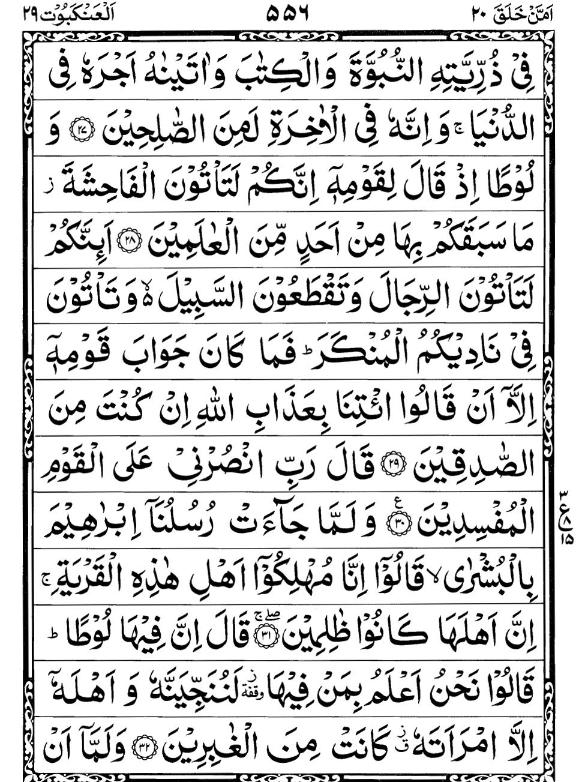 اَمَّنْ خَلَقَ ٢٠ ٥٥٦ اَلْعَنْكَبُوْت ٢٩
فِيْ ذُرِّيَّتِهِ النُّبُوَّةَ وَالْكِتٰبَ وَاٰتَيْنٰهُ اَجْرَهٗ فِي
الدُّنْيَا ۚ وَاِنَّهٗ فِي الْاٰخِرَةِ لَمِنَ الصّٰلِحِيْنَ ﴿٢٧﴾ وَ
لُوْطًا اِذْ قَالَ لِقَوْمِهٖۤ اِنَّكُمْ لَتَاْتُوْنَ الْفَاحِشَةَ ز
مَا سَبَقَكُمْ بِهَا مِنْ اَحَدٍ مِّنَ الْعٰلَمِيْنَ ﴿٢٨﴾ اَئِنَّكُمْ
لَتَاْتُوْنَ الرِّجَالَ وَتَقْطَعُوْنَ السَّبِيْلَ ۙ۬ وَتَاْتُوْنَ
فِيْ نَادِيْكُمُ الْمُنْكَرَ ؕ فَمَا كَانَ جَوَابَ قَوْمِهٖۤ
اِلَّاۤ اَنْ قَالُوا ائْتِنَا بِعَذَابِ اللّٰهِ اِنْ كُنْتَ مِنَ
الصّٰدِقِيْنَ ﴿٢٩﴾ قَالَ رَبِّ انْصُرْنِيْ عَلَى الْقَوْمِ
الْمُفْسِدِيْنَ ﴿٣٠﴾ ع وَلَمَّا جَآءَتْ رُسُلُنَاۤ اِبْرٰهِيْمَ
بِالْبُشْرٰى ۙ قَالُوْۤا اِنَّا مُهْلِكُوْۤا اَهْلِ هٰذِهِ الْقَرْيَةِ ۚ
اِنَّ اَهْلَهَا كَانُوْا ظٰلِمِيْنَ ﴿٣١﴾ ۖۚ قَالَ اِنَّ فِيْهَا لُوْطًا ؕ
قَالُوْا نَحْنُ اَعْلَمُ بِمَنْ فِيْهَا ز وقفة لَنُنَجِّيَنَّهٗ وَاَهْلَهٗۤ
اِلَّا امْرَاَتَهٗ ز ق كَانَتْ مِنَ الْغٰبِرِيْنَ ﴿٣٢﴾ وَلَمَّاۤ اَنْ
٣
ع ٨
١٥